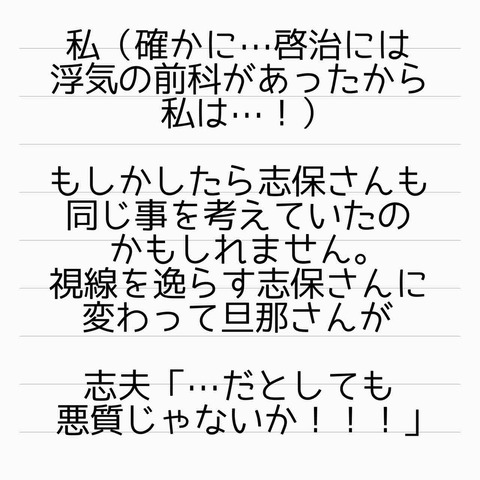 私（確かに…啓治には
浮気の前科があったから
私は…！）
もしかしたら志保さんも
同じ事を考えていたの
かもしれません。
視線を逸らす志保さんに
変わって旦那さんが
志夫「…だとしても
悪質じゃないか！！！」